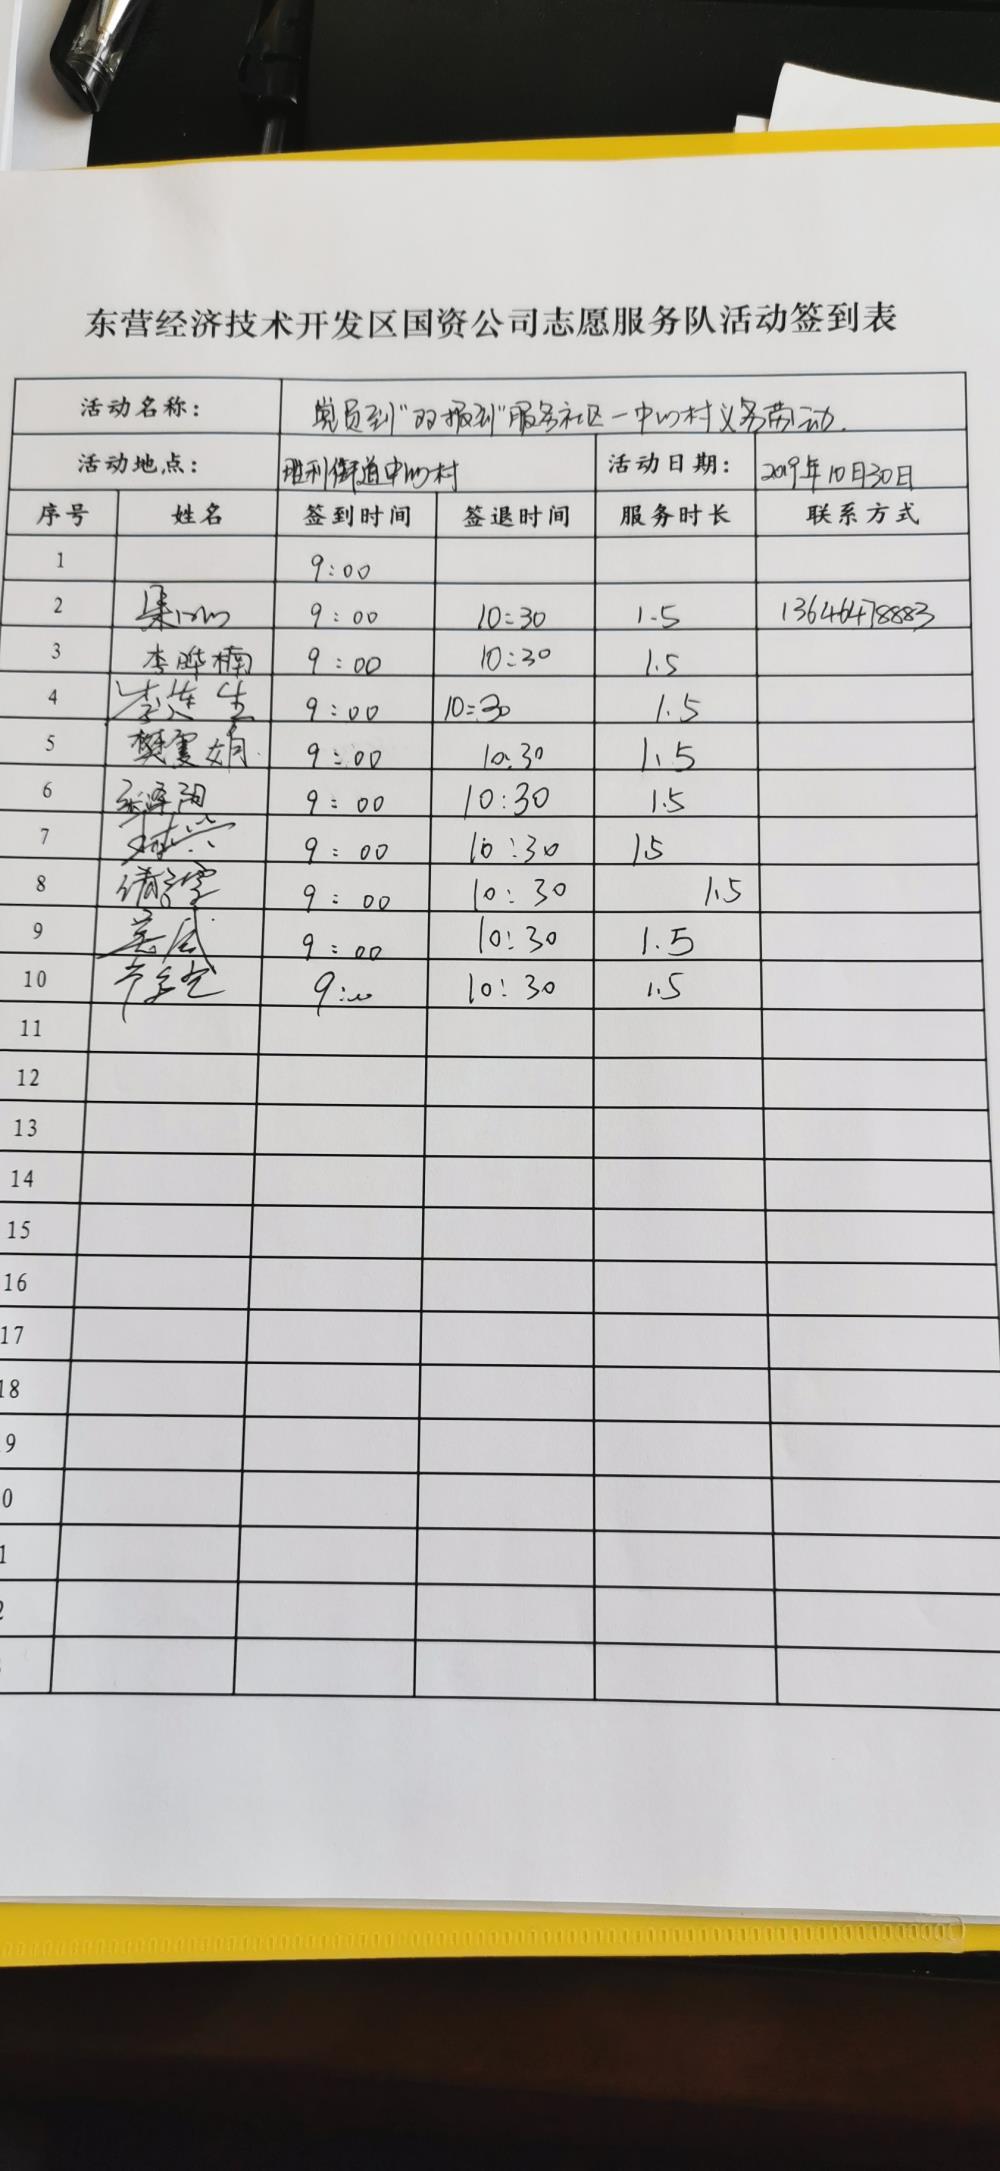 东营经济技术开发区国资公司志愿服务队活动签到表
活动名称： 党员到"双报到"服务社区一中心村义务劳动.
活动地点： 胜利街道中心村 活动日期： 2019年10月30日
序号 姓名 签到时间 签退时间 服务时长 联系方式
1 9:00
2 9:00 10:30 1.5 13646478883
3 李晔楠 9:00 10:30 1.5
4 李先生 9:00 10:30 1.5
5 樊夏娟 9:00 10:30 1.5
6 9:00 10:30 1.5
7 9:00 10:30 15
8 9:00 10:30 1.5
9 9:00 10:30 1.5
10 9:00 10:30 1.5
11
12
13
14
15
16
17
18
9
0
1
2